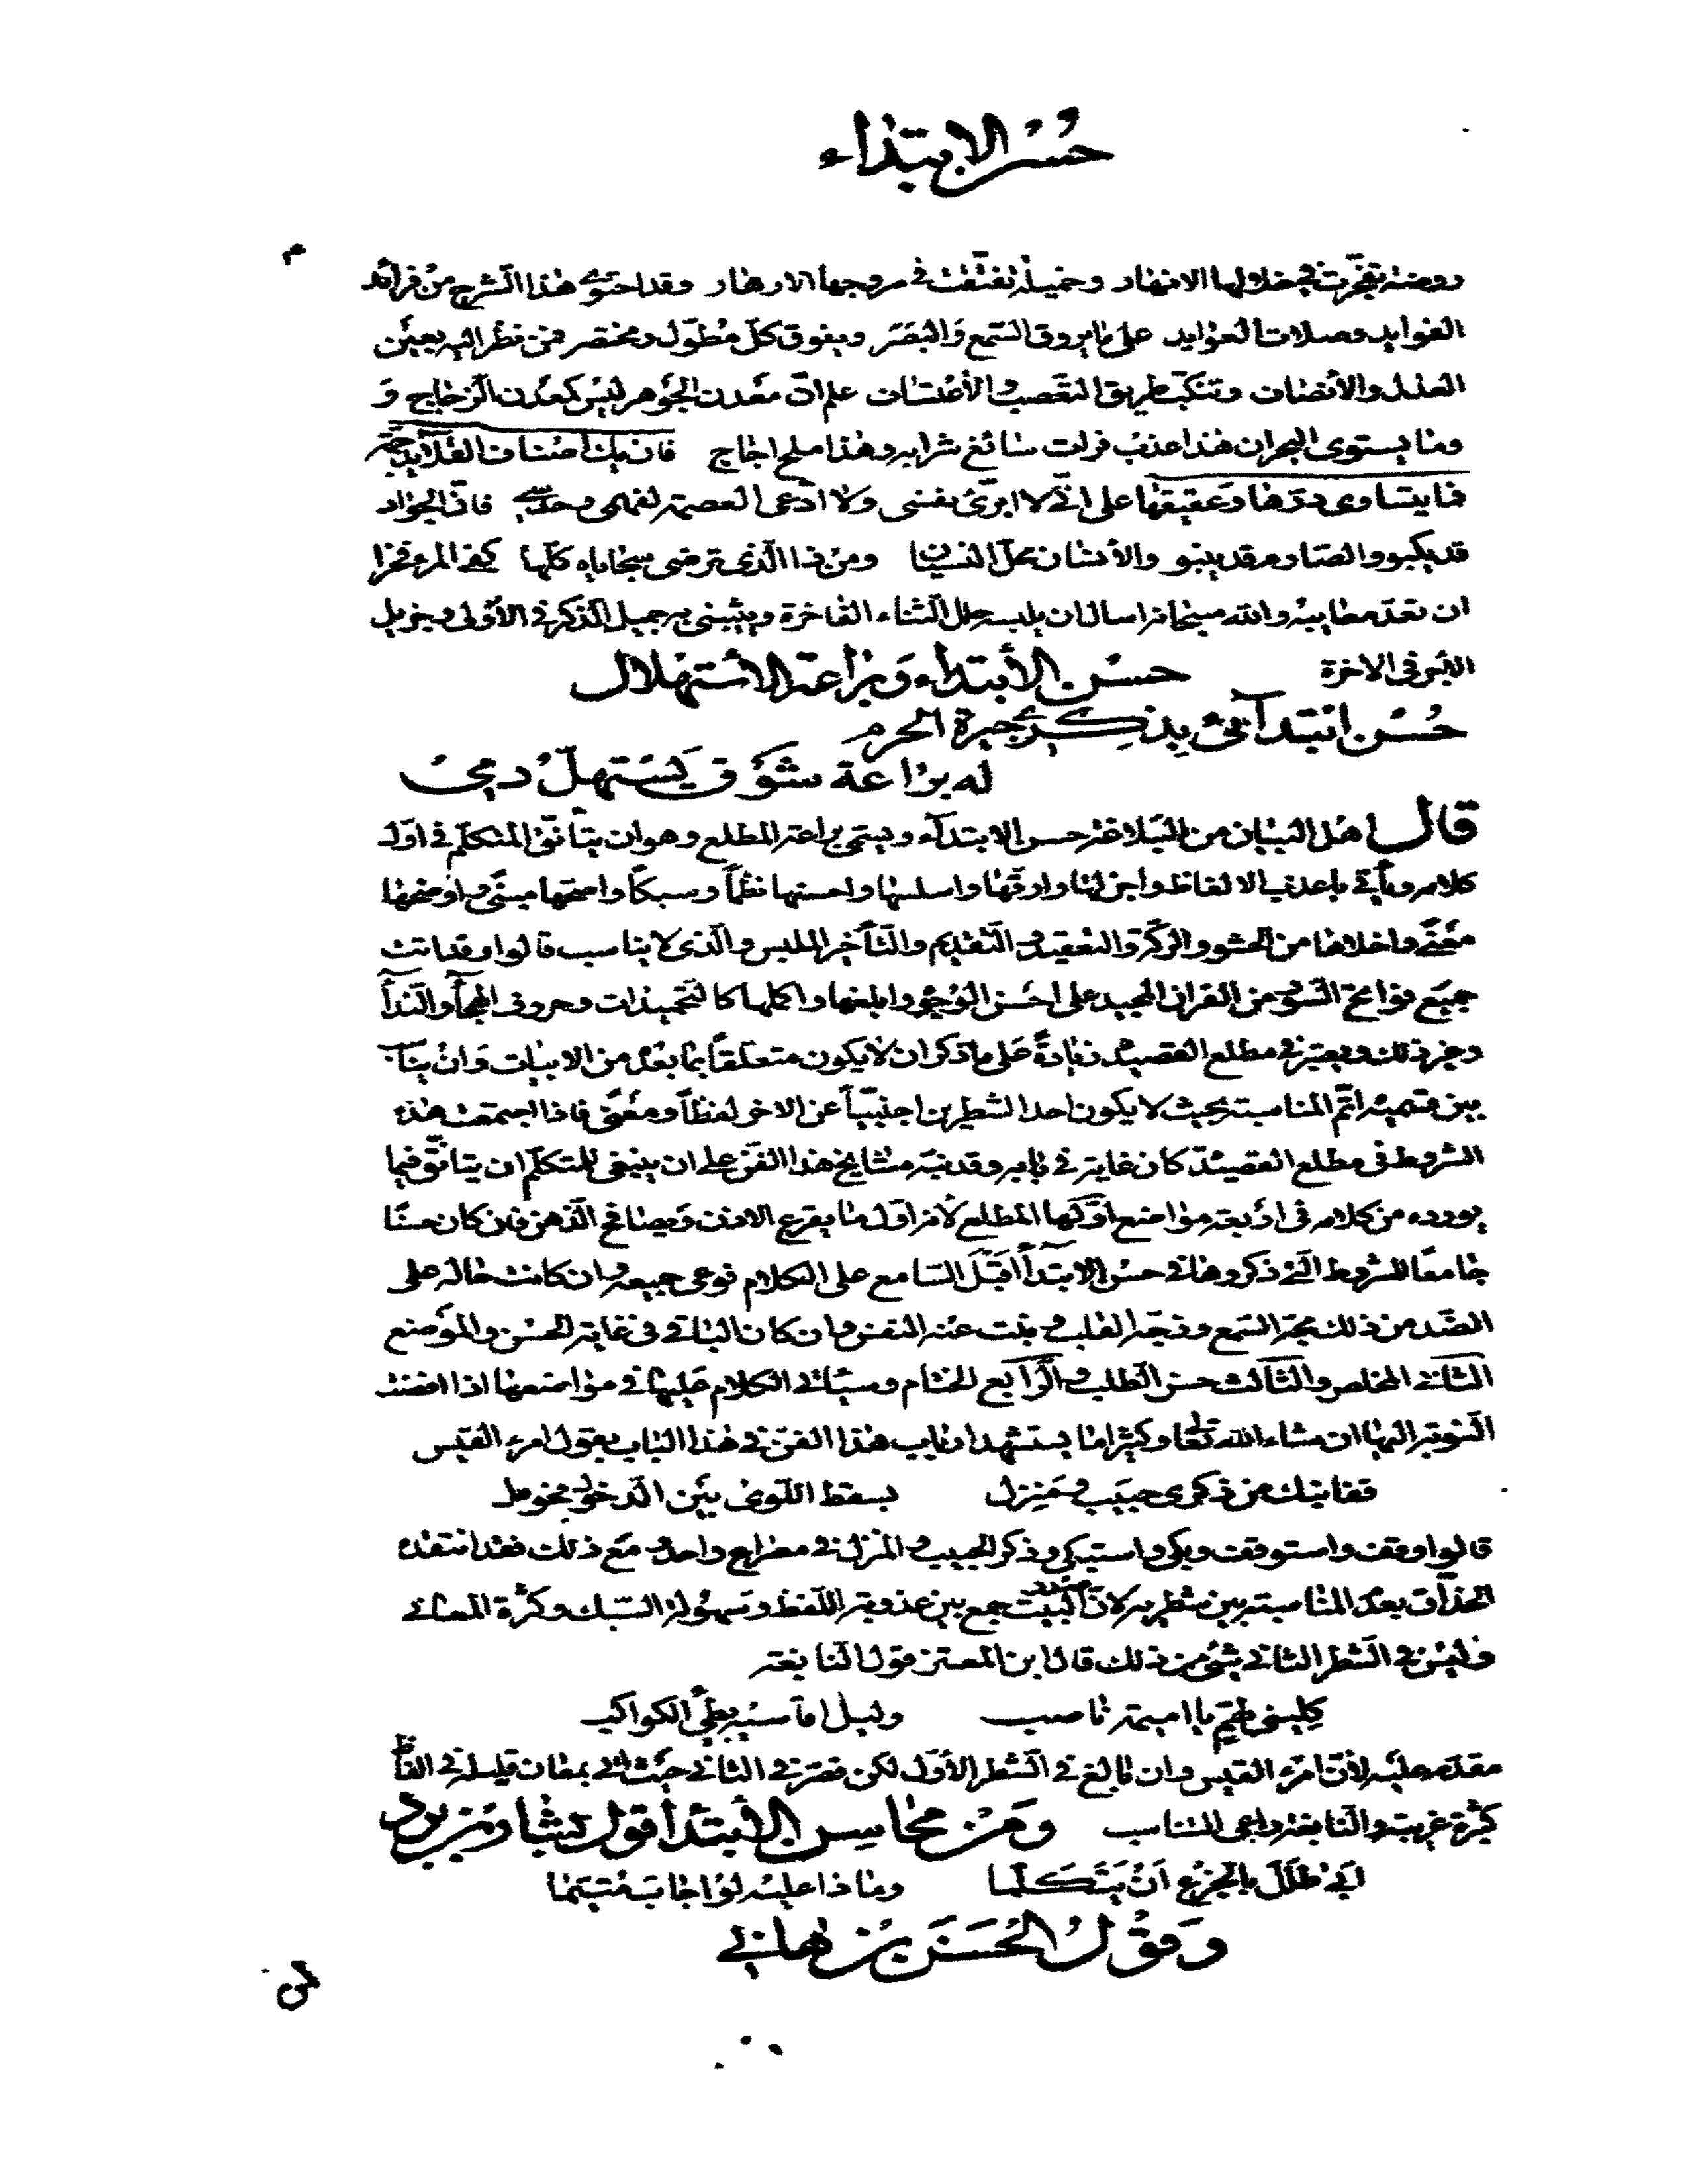 حُسْن الابتداء
روضة تفجرت في خلالها الانهار وخميلة تفتقت في مروجها الازهار وقد احتوى هذا الشرح من فرائد
الفوايد وصلات العوايد على ما يروق السّمع وَالبَصَر ويفوق كلّ مُطَوّل ومختصر فمن نظر اليه بعين
العدل والأنصاف وتنكّب طريق التعّصب والأعتساف علم انّ معَدن الجَوهر ليسَ كمعَدن الزّجاج وَ
وما يستوى البحران هذا عذب فرات سائغ شرابه وهذا ملح اجاج فان يك اصناف القلآيد جمّة
فما يتساوى درّها وَعقيقها على انّي لا ابرّئ نفسى ولا ادّعى العصمة لفهمى وحدسي فانّ الجواد
قد يكبو والصارم قد ينبو والأنسان محلّ النسيان ومن ذا الّذى ترضى سجاياه كلّها كفى المرء فخرا
ان تعدّ معايبه والله سبحانه اسال ان يلبسه حلل الثّناء الفاخرة ويثيبنى به جميل الذّكر في الأولى وجزيل
الاجر فى الاخرة حسْن الأبتداء وَبراعة الأستهْلال
حُسْن ابْتدآئى بِذِكرى جيرة الحرم
له برَاعة شَوْق يَسْتهلّ دمى
قال اهل البيان من البَلاغة حسن الابتدآء ويسمّى براعة المطلع وهو ان يتأنّق المتكلّم في اوّل
كلامه ويأتي باعذب الالفاظ واجزلها وارقّها واسلسها واحسنها نظماً وسبكاً واصحّها مبنىً واوضحها
معَنىً واخلاها من الحشو والركّة والتعقيد والتّقديم والتّأخير الملبس والّذى لا يناسب قالوا وقد اتت
جميَع فواتح السّور من القرآن المجيد على احسَن الوُجوه وابلغها واكملها كالتحميدات وحروف الهجآ والنّدآ
وغير ذلك ويعتبر في مطلع القصيدة زيادةً عَلى ما ذكر ان لا يكون متعلّقاً بما بعْده من الابيات وَانْ يناسب
بين قسميه اتمّ المناسبة بحيث لا يكون احد الشطرين اجنبيّاً عن الاخر لفظاً ومعَنىً فاذا اجتمعت هذه
الشروط فى مطلع القصيدة كان غاية في بابه وقد نبّه مشايخ هذا الفنّ على ان ينبغى للمتكلّم ان يتانّق فيما
يورده من كلامه فى ارْبعة مواضع اوّلها المطلع لأنه اول ما يقرع الاذن وَيصافح الذّهن فان كان حسنًا
جامعًا للشروط الّتى ذكروها في حسْن الابتدآ اقبَلَ السّامع على الكلام فوعى جميعه وان كانت حاله على
الضّد من ذلك مجّه السّمع وزجّه القلب ونبت عنه النفس وان كان الباقى فى غاية الحسْن والموَضع
الثاني المخلص والثّالث حسن الطلب والرّابع الختام وسياتى الكلام عَليها في مواضعها اذا افضت
النّوبة اليها ان شاء الله تعالى وكثيرا ما يستشهد ارباب هذا الفنّ في هذا الباب بقول امرء القيس
قفا نبك من ذكرى حبيَب وَمَنِزل بسقط اللّوى بيَن الدّخول فحومل
قالوا وقف واستوقف وبكى واستبكى وذكر الحبيب والمنْزل في مصْراع واحد ومَع ذلك فقد انتقده
الحذّاق بعَدم المناسبة بين شطريه لانّ صدر البيت جمع بين عذوبة اللّفظ وسَهُولة السّبك وكثْرة المعانى
وليْس في الشّطر الثاني شىْء من ذلك قال ابن المعتز قول النّابغة
كِلينى لهمّ يا اميمة ناصب وليل اقاسيْه بطَىْ الكواكب
مقدّم عليْه لأنّ امرء القيس وان بالغ فى الشّطر الأوّل لكن قصّر في الثانى حيَث اتى بمعان قليلة في الفاظ
كثْيرة غريبة والنّابغة راعى التناسب وَمنْ محَاسِن الأبتدَأ قول بشار بن برد
ابى طَلَل بالجزْع انْ يتَكلّما وماذا عليْه لوْ اجابَ مُتيّما
وَقوْلُ الحُسَن بْن هانئ